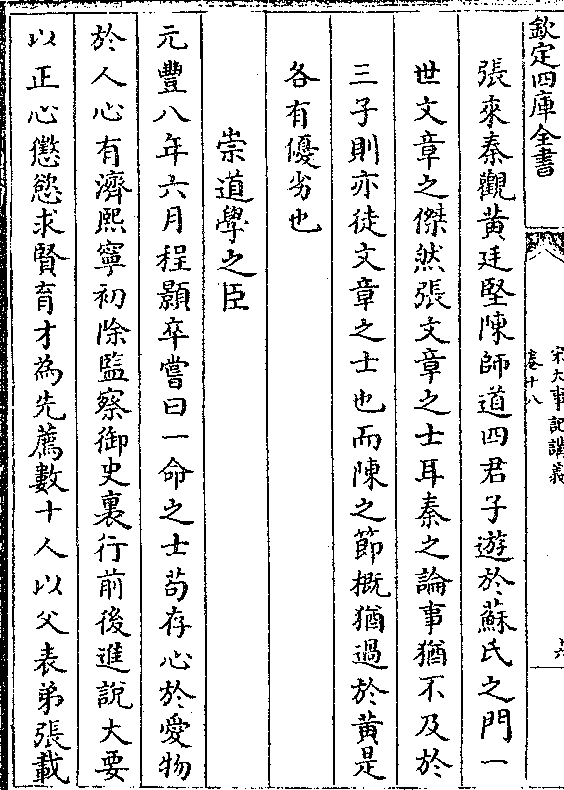 欽定四庫全書
宋大事記講義
卷十八
張來秦觀黃廷堅陳師道四君子遊於蘇氏之門一
世文章之傑然張文章之士耳秦之論事猶不及於
三子則亦徒文章之士也而陳之節概猶過於黃是
各有優劣也
崇道學之臣
元豐八年六月程顥卒嘗曰一命之士茍存心於愛物
於人心有濟熙寧初除監察御史裏行前後進說大要
以正心懲慾求賢育才為先薦數十人以父表弟張載